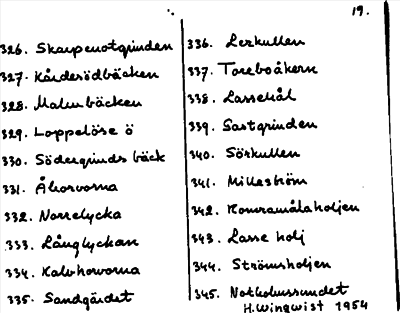 19.
326. Skarpenotgrinden
327. Kårderödbäcken
328. Malmbäcken
329. Loppelöse ö
330. Södergrinds bäck
331. Åhorvorna
332. Norrelycka
333. Långlyckan
334. Kalvhovorna
335. Sandgärdet
336. Lerkullen
337. Toreboåkern
338. Lassehål
339. Sastgrinden
340. Sörkullen
341. Milleström
342. Komramålaholjen
343. Lasse holj
344. Strömsholjen
345. Notholmssundet
H. Wingwist 1954